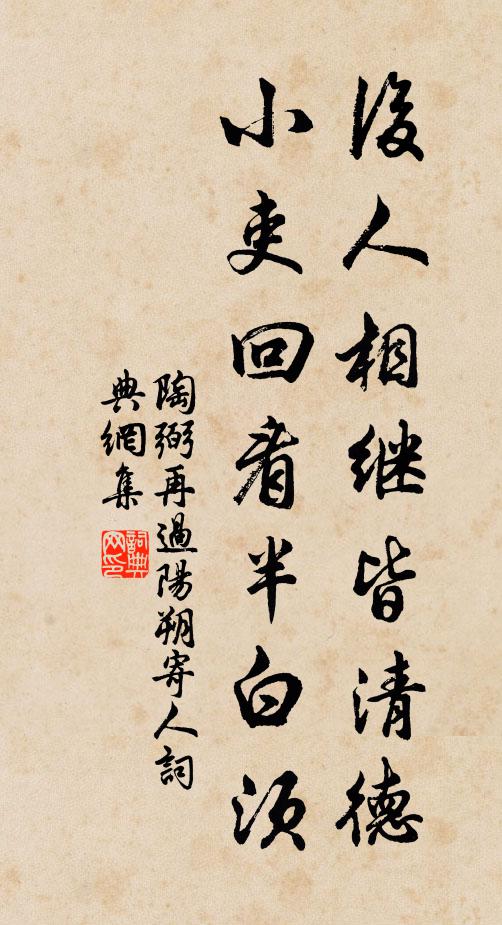 後人相继皆清德
小吏回看半白须
陶弼再過陽朔寄人詞
典網集
詞典
网印